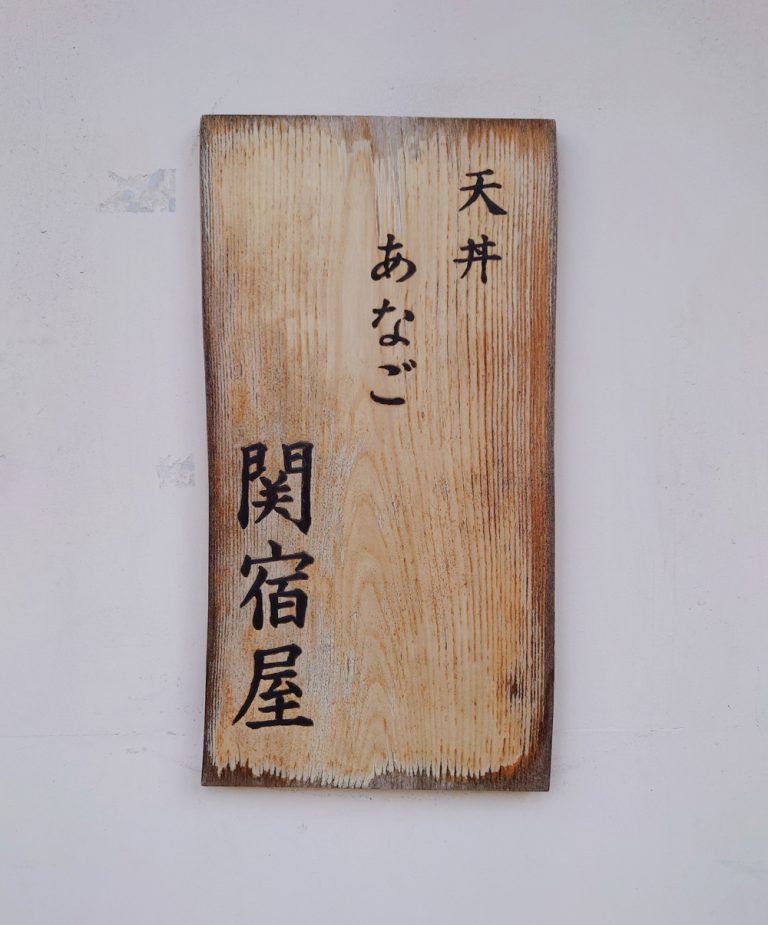 天丼
あなご
関宿屋